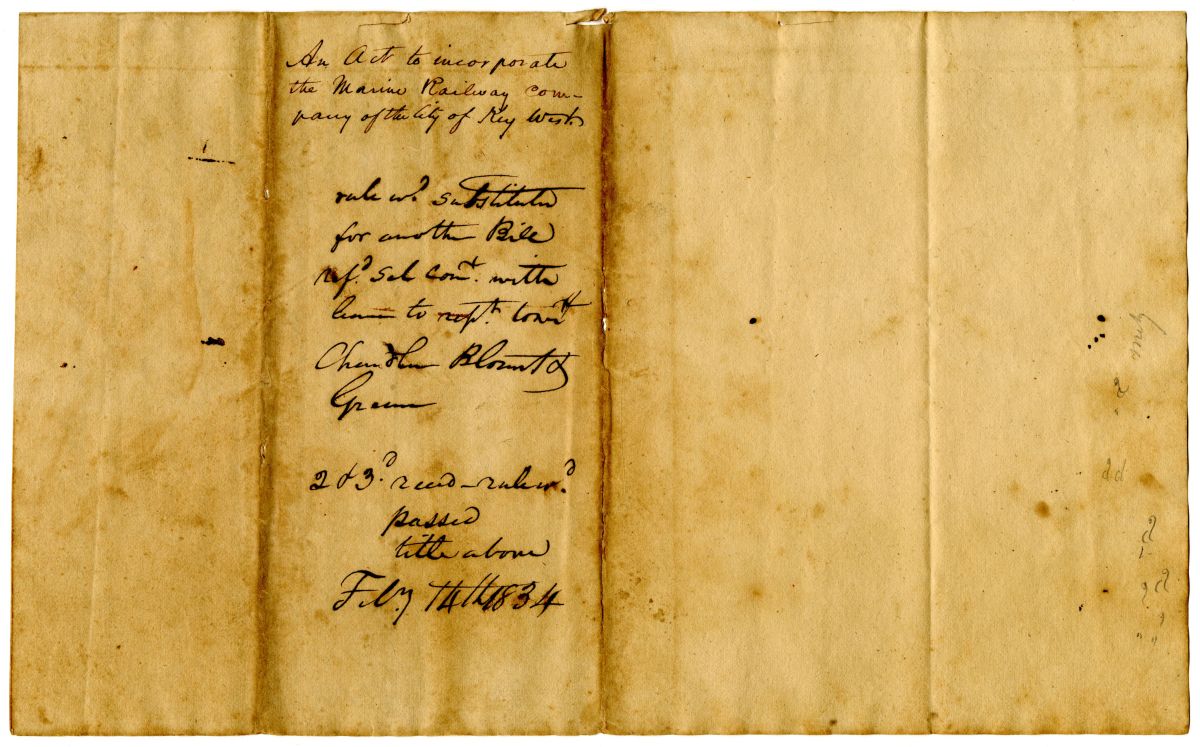 An Act to incorporate
the Marine Railway com-
pany of the City of Key West
rule wd. substituted
for another Bill
refd. Sel Comt. with
leave to rept.
Chandler Blount &
Green
2 & 3d. read - rule wd.
passed
title above
Feby 14th 1834